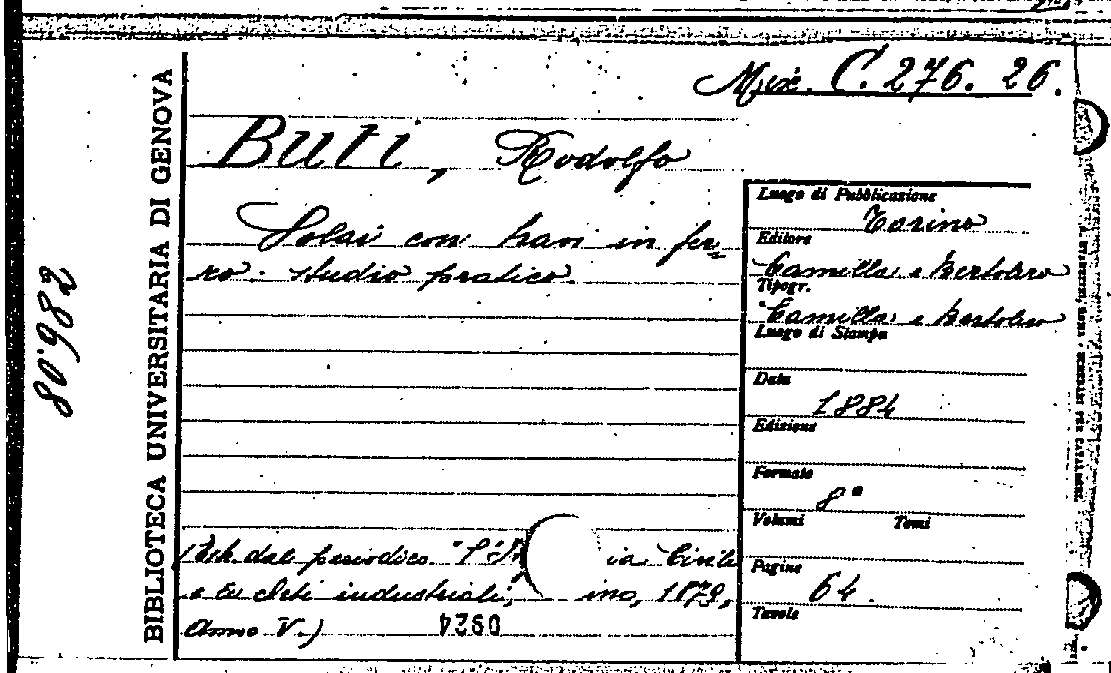 Misc. C. 276. 26.
BIBLIOTECA UNIVERSITARIA DI GENOVA
80982
Buti, Rodolfo
Solai con travi in fer=
ro. studio pratico.
(Estr. dal periodico "L'In ia Civile
e le Arti industriali, ino, 1879,
Anno V.)
0924
Luogo di Pubblicazione
Torino
Editore
Camilla e Bertolero
Tipogr.
Camilla e Bertolero
Luogo di Stampa
Data
1884
Edizione
Formato
8°
Volumi Tomi
Pagine
64.
Tavole